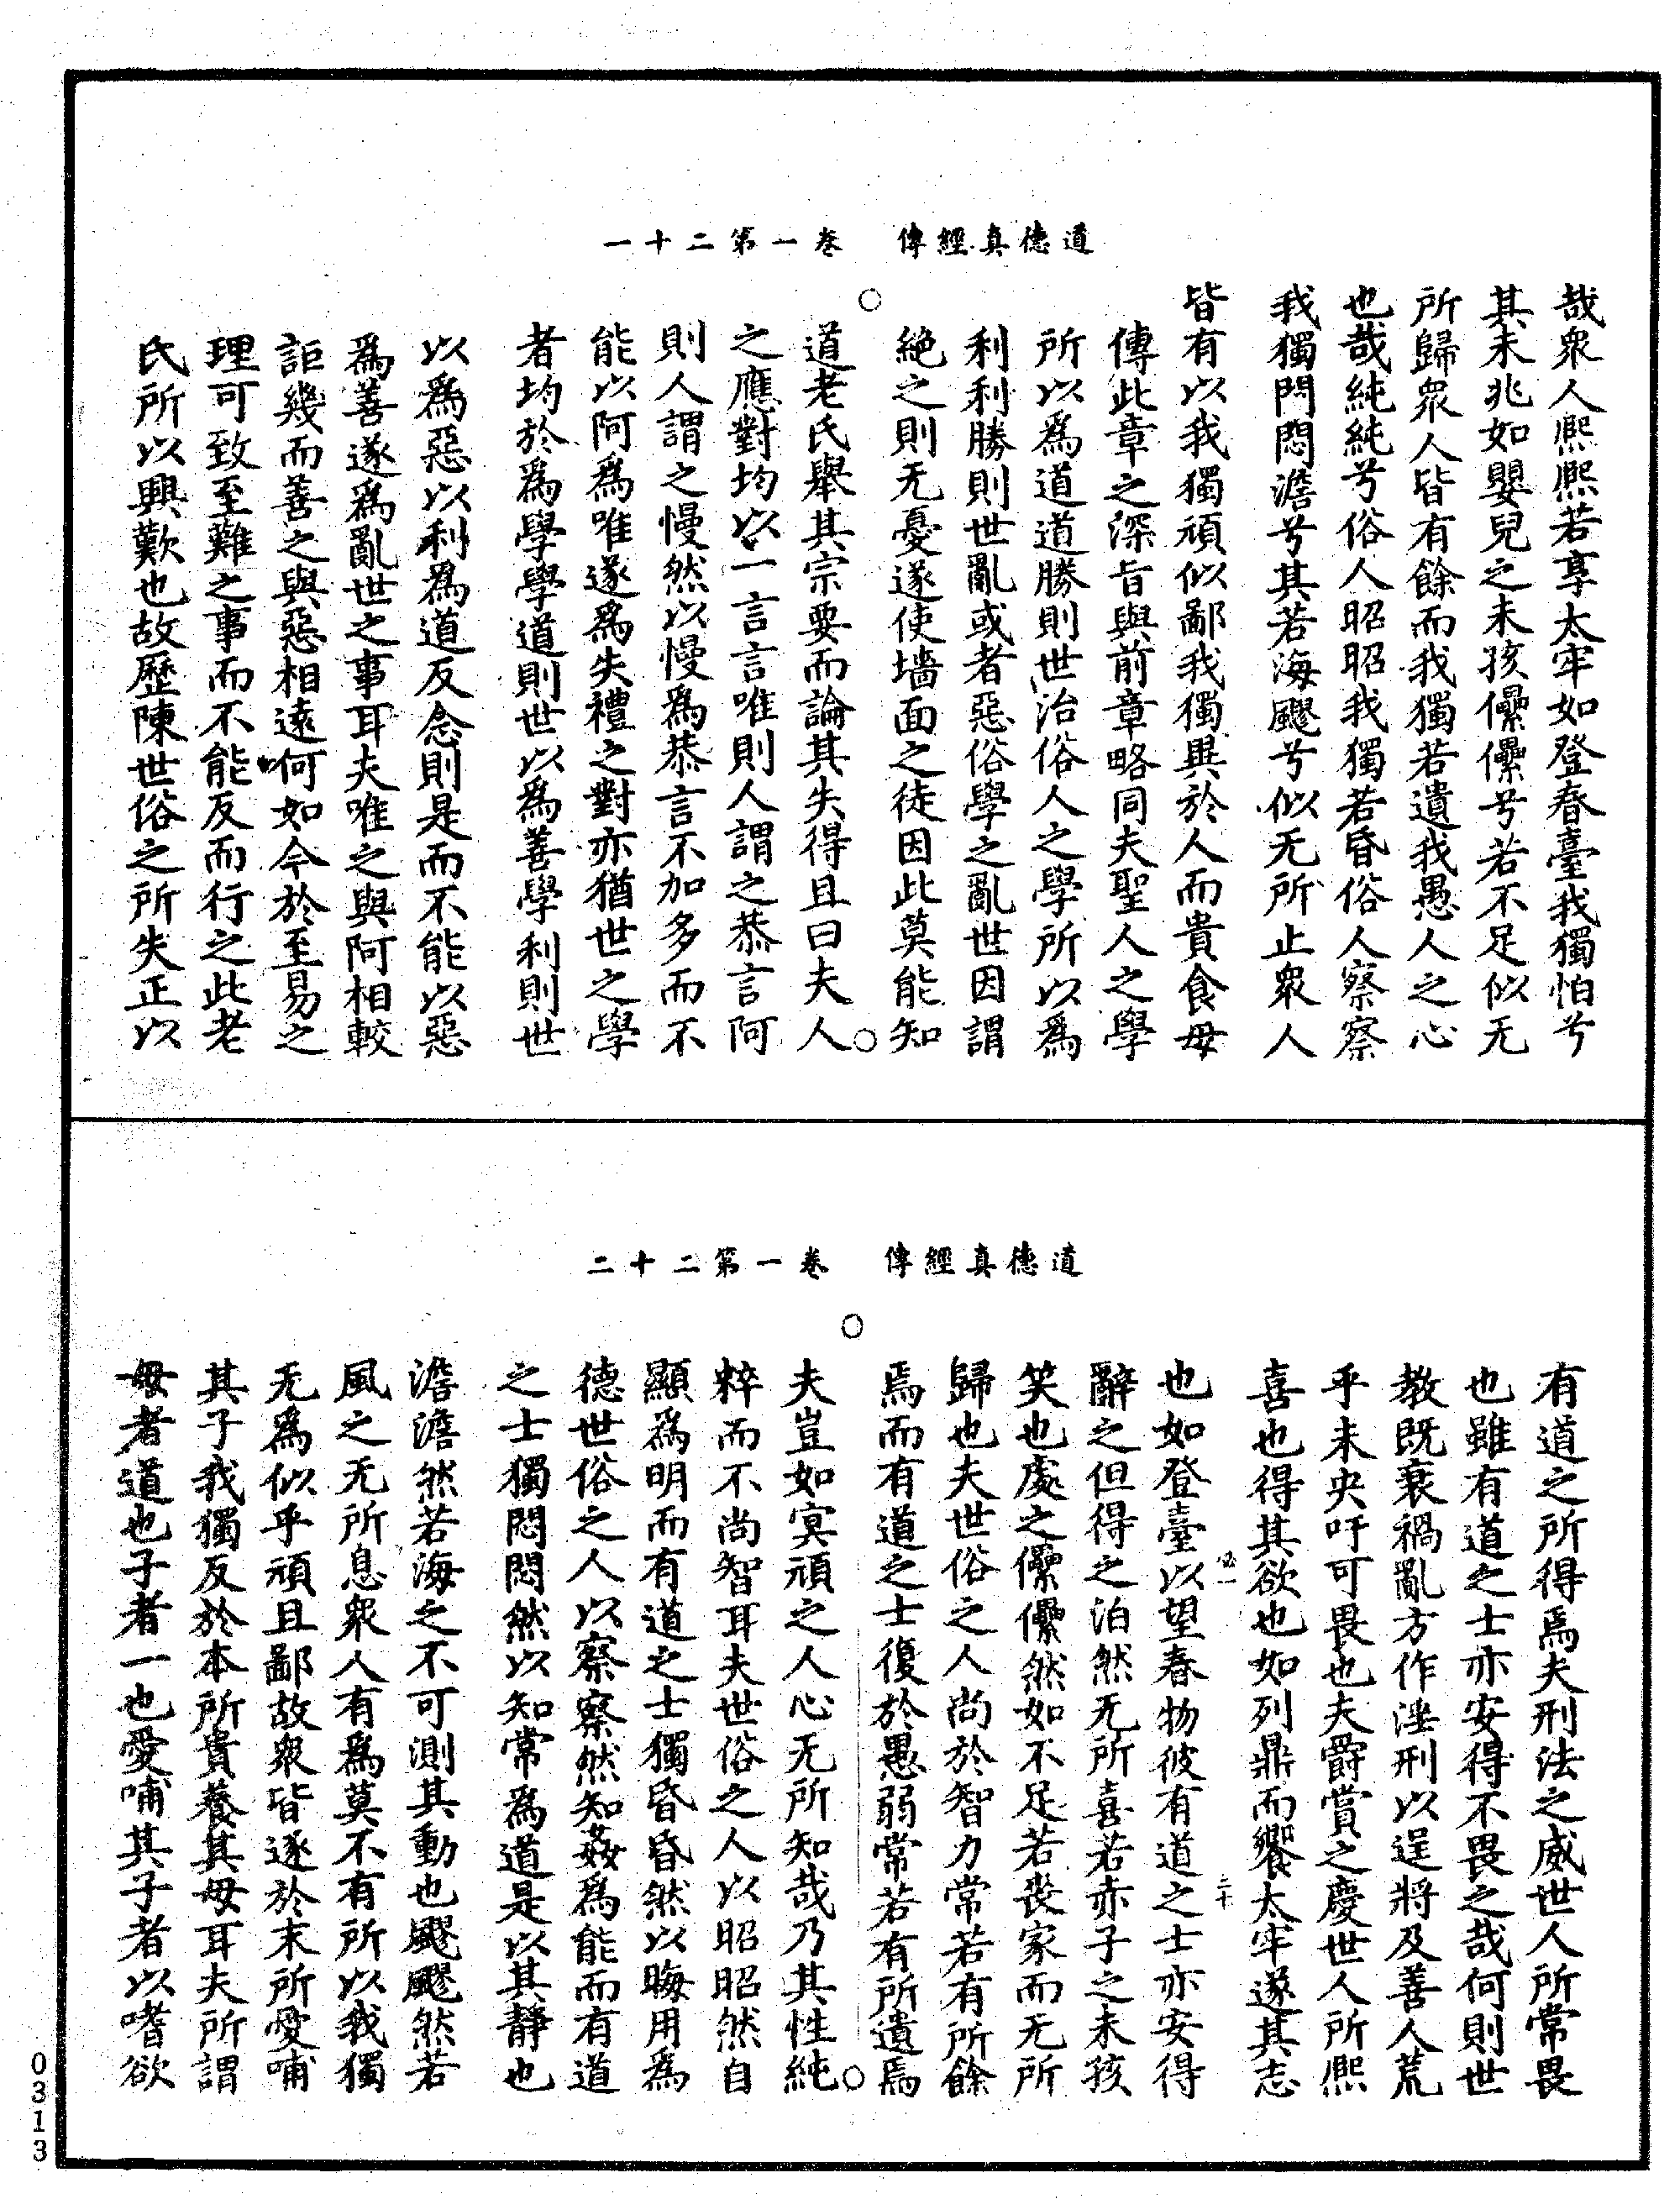 道德真經傳　卷一第二十一
哉衆人熙熙若享太牢如登春臺我獨怕兮
其未兆如嬰兒之未孩儽儽兮若不足似无
所歸衆人皆有餘而我獨若遺我愚人之心
也哉純純兮俗人昭昭我獨若昏俗人察察
我獨悶悶澹兮其若海飂兮似无所止衆人
皆有以我獨頑似鄙我獨異於人而貴食母
傳此章之深旨與前章略同夫聖人之學
所以爲道道勝則世治俗人之學所以爲
利利勝則世亂或者惡俗學之亂世因謂
絶之則无憂遂使墻面之徒因此莫能知
道老氏舉其宗要而論其失得且曰夫人
之應對均以一言言唯則人謂之恭言阿
則人謂之慢然以慢爲恭言不加多而不
能以阿爲唯遂爲失禮之對亦猶世之學
者均於爲學學道則世以爲善學利則世
以爲惡以利爲道反念則是而不能以惡
爲善遂爲亂世之事耳夫唯之與阿相較
詎幾而善之與惡相遠何如今於至易之
理可致至難之事而不能反而行之此老
氏所以興歎也故歷陳世俗之所失正以
道德真經傳　卷一第二十二
有道之所得焉夫刑法之威世人所常畏
也雖有道之士亦安得不畏之哉何則世
教既衰禍亂方作淫刑以逞將及善人荒
乎未央吁可畏也夫爵賞之慶世人所熙
喜也得其欲也如列鼎而饗太牢遂其志
也如登臺以望春物彼有道之士亦安得
辭之但得之泊然无所喜若赤子之未孩
笑也處之儽儽然如不足若喪家而无所
歸也夫世俗之人尚於智力常若有所餘
焉而有道之士復於愚弱常若有所遺焉
夫豈如冥頑之人心无所知哉乃其性純
粹而不尚智耳夫世俗之人以昭昭然自
顯爲明而有道之士獨昏昏然以晦用爲
德世俗之人以察察然知姦爲能而有道
之士獨悶悶然以知常爲道是以其靜也
澹澹然若海之不可測其動也飂飂然若
風之无所息衆人有爲莫不有所以我獨
无爲似乎頑且鄙故衆皆逐於末所愛哺
其子我獨反於本所貴養其母耳夫所謂
母者道也子者一也愛哺其子者以嗜欲
0313